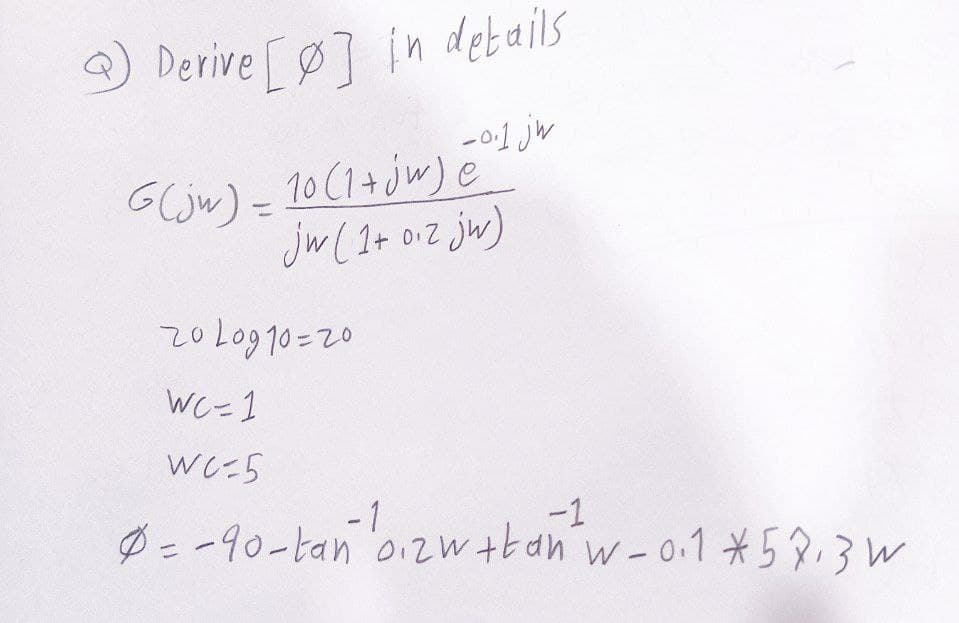 Q) Derive [∅] in details
G(jw) = 10(1+jw) e^-0.1jw / jw(1+0.2jw)
20 Log10=20
WC=1
WC=5
∅ = -90-tan^-1 0.2w+tan^-1 w-0.1*57.3w